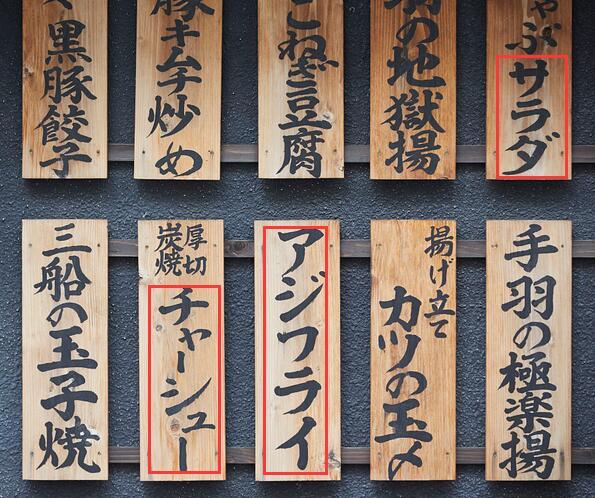 ゃぶサラダ
羽の地獄揚
こねぎ豆腐
豚キムチ炒め
黒豚餃子
手羽の極楽揚
揚げ立て
カツの玉〆
アジフライ
厚切
炭焼
チャーシュー
三船の玉子焼